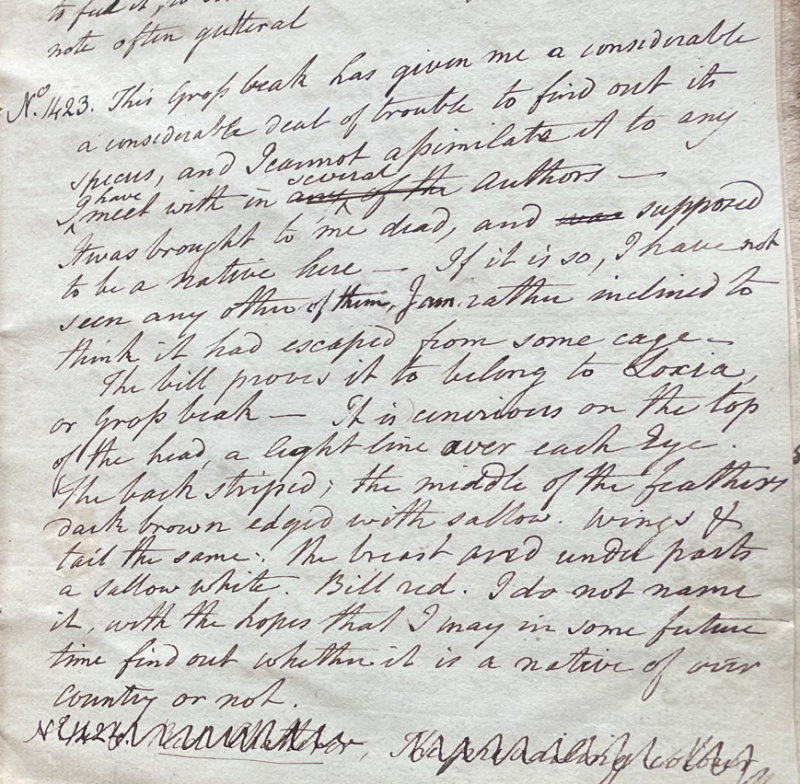 note often gutteral
No. 1423. This Grosbeak has given me a considerable
a considerable deal of trouble to find out its
species, and I cannot assimilate it to any
I have meet with in several any of the authors —
It was brought to me dead, and was supposed
to be a native here — If it is so, I have not
seen any other of them, I am rather inclined to
think it had escaped from some cage —
The bill proves it to belong to Loxia,
or Grosbeak — It is cinerious on the top
of the head, a light line over each Eye.
The back striped; the middle of the feathers
dark brown edged with sallow. Wings &
tail the same: the breast and under parts
a sallow white. Bill red. I do not name
it, with the hopes that I may in some future
time find out whether it is a native of our
country or not.
No. 1424.